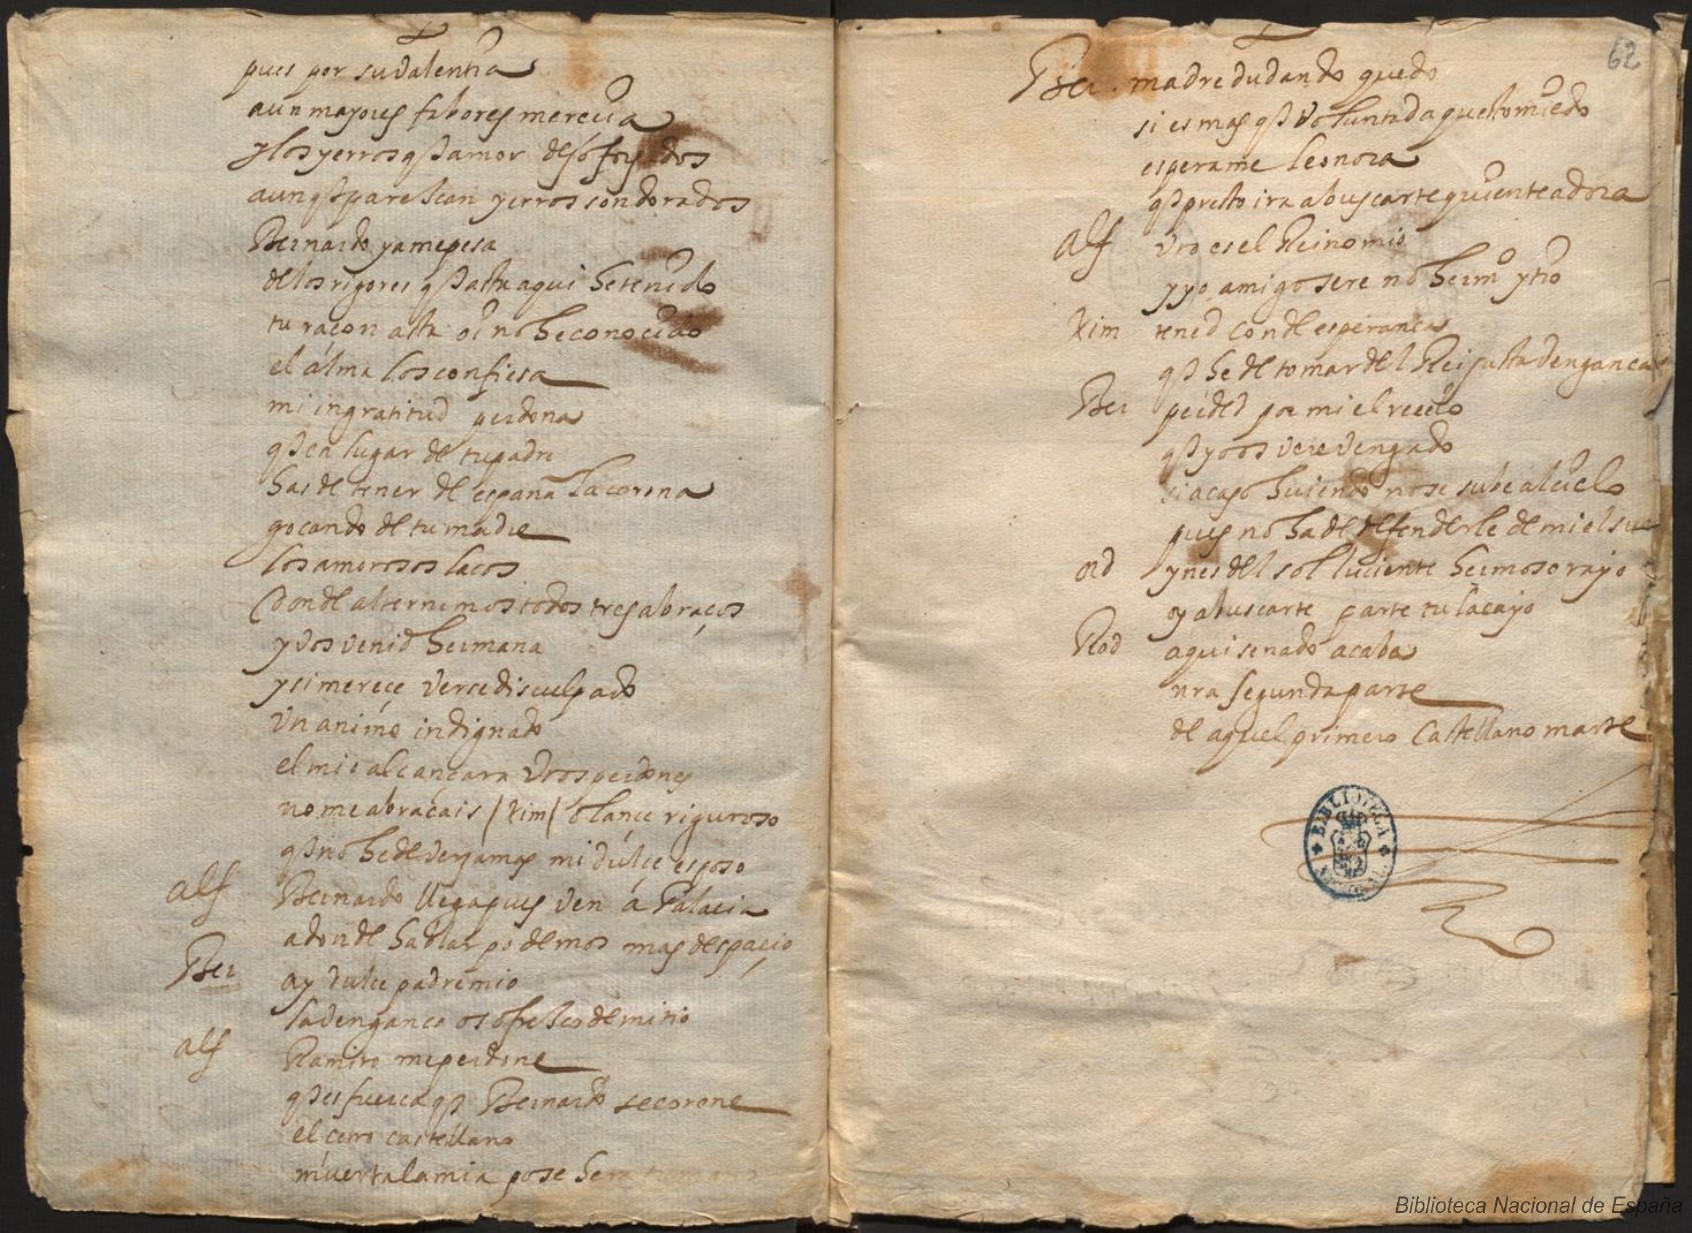 pues por su valentia
aun mayores fabores mereçia
y los yerros q̃ de amor
aunq̃ parescan yerros son dorados
Bernardo ya me pesa
de los rigores q̃ asta aqui he tenido
tu raçon asta oi no he conocido
el alma los confiesa
mi ingratitud perdona
q̃ en lugar de tu padre
has de tener de españa la corona
goçando de tu madre
los amorosos laços
donde alternemos todos tres abraços
y vos venid hermana
y si mereçe verse disculpado
un animo indignado
el mio alcançara vros perdones
no me abraçais / Xim / o lançe riguroso
q̃ no he de ver jamas mi dulçe esposo
Alf Bernardo llega pues ven á Palaçio
adonde hablar podemos mas despaçio
Ber ay dulçe padre mio
la vengança os ofresco de mi tio
Alf Ramiro me perdone
q̃ es fuerça q̃ Bernardo se corone
el çetro castellano
muerta la mia pose
62
Ber. madre dudando quedo
si es mas q̃ voluntad aqueste miedo
esperame leonora
q̃ presto ira a buscarte quien te adora
Alf vro es el Reino mio
y yo amigo sere no herm.º y tio
Xim tened conde esperança
q̃ he de tomar del Rei justa vengança
Ber perded por mi el reçelo
q̃ yo os vere vengado
si acaso huiendo no se sube al çielo
pues no ha de defenderle de mi el
ord ynes del sol luciente hermoso rayo
oy a buscarte parte tu lacayo
Rod aqui senado acaba
nra segunda parte
de aquel primero Castellano marte
BIBLIOTECA NACIONAL
Biblioteca Nacional de España